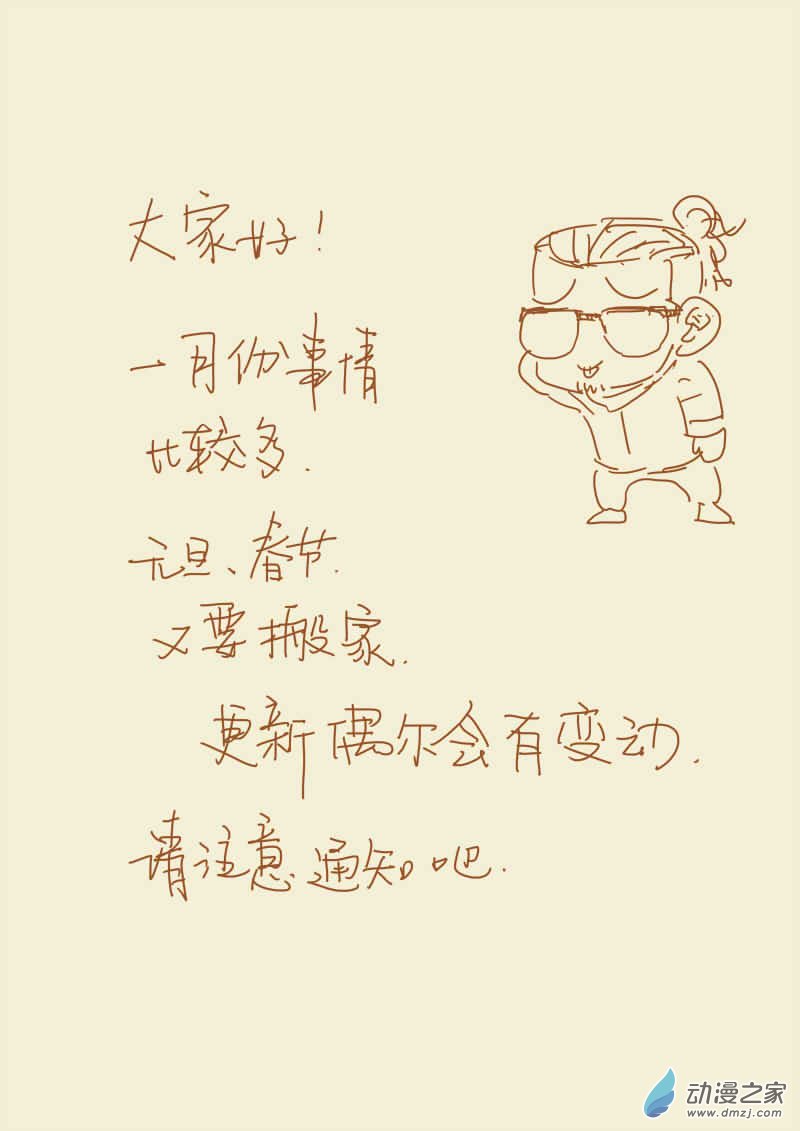 大家好!
一月份事情
比较多.
元旦、春节.
又要搬家.
更新偶尔会有变动.
请注意通知吧.
动漫之家
www.dmzj.com